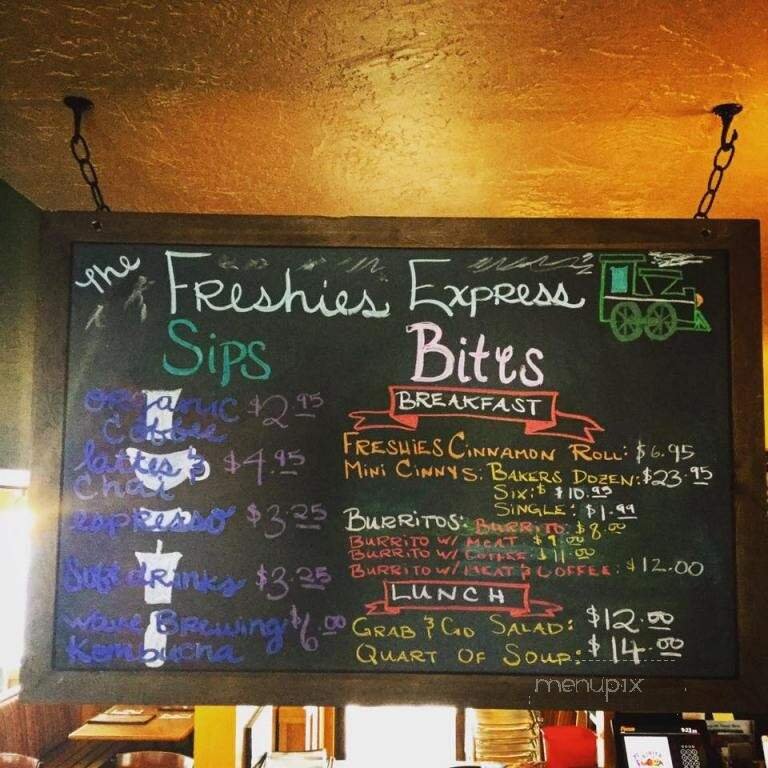 the Freshies Express
Sips
organic coffee $2.95
lattes & chai $4.95
espresso $3.25
soft drinks $3.25
wave Brewing Kombucha $6.00
Bites
BREAKFAST
FRESHIES CINNAMON ROLL: $6.95
MINI CINNYS: BAKERS DOZEN: $23.95
SIX: $10.95
SINGLE: $1.99
BURRITOS: BURRITO: $8.00
BURRITO W/ MEAT $9.00
BURRITO W/ COFFEE $11.00
BURRITO W/ MEAT & COFFEE: $12.00
LUNCH
GRAB & GO SALAD: $12.00
QUART OF SOUP: $14.00
menupix